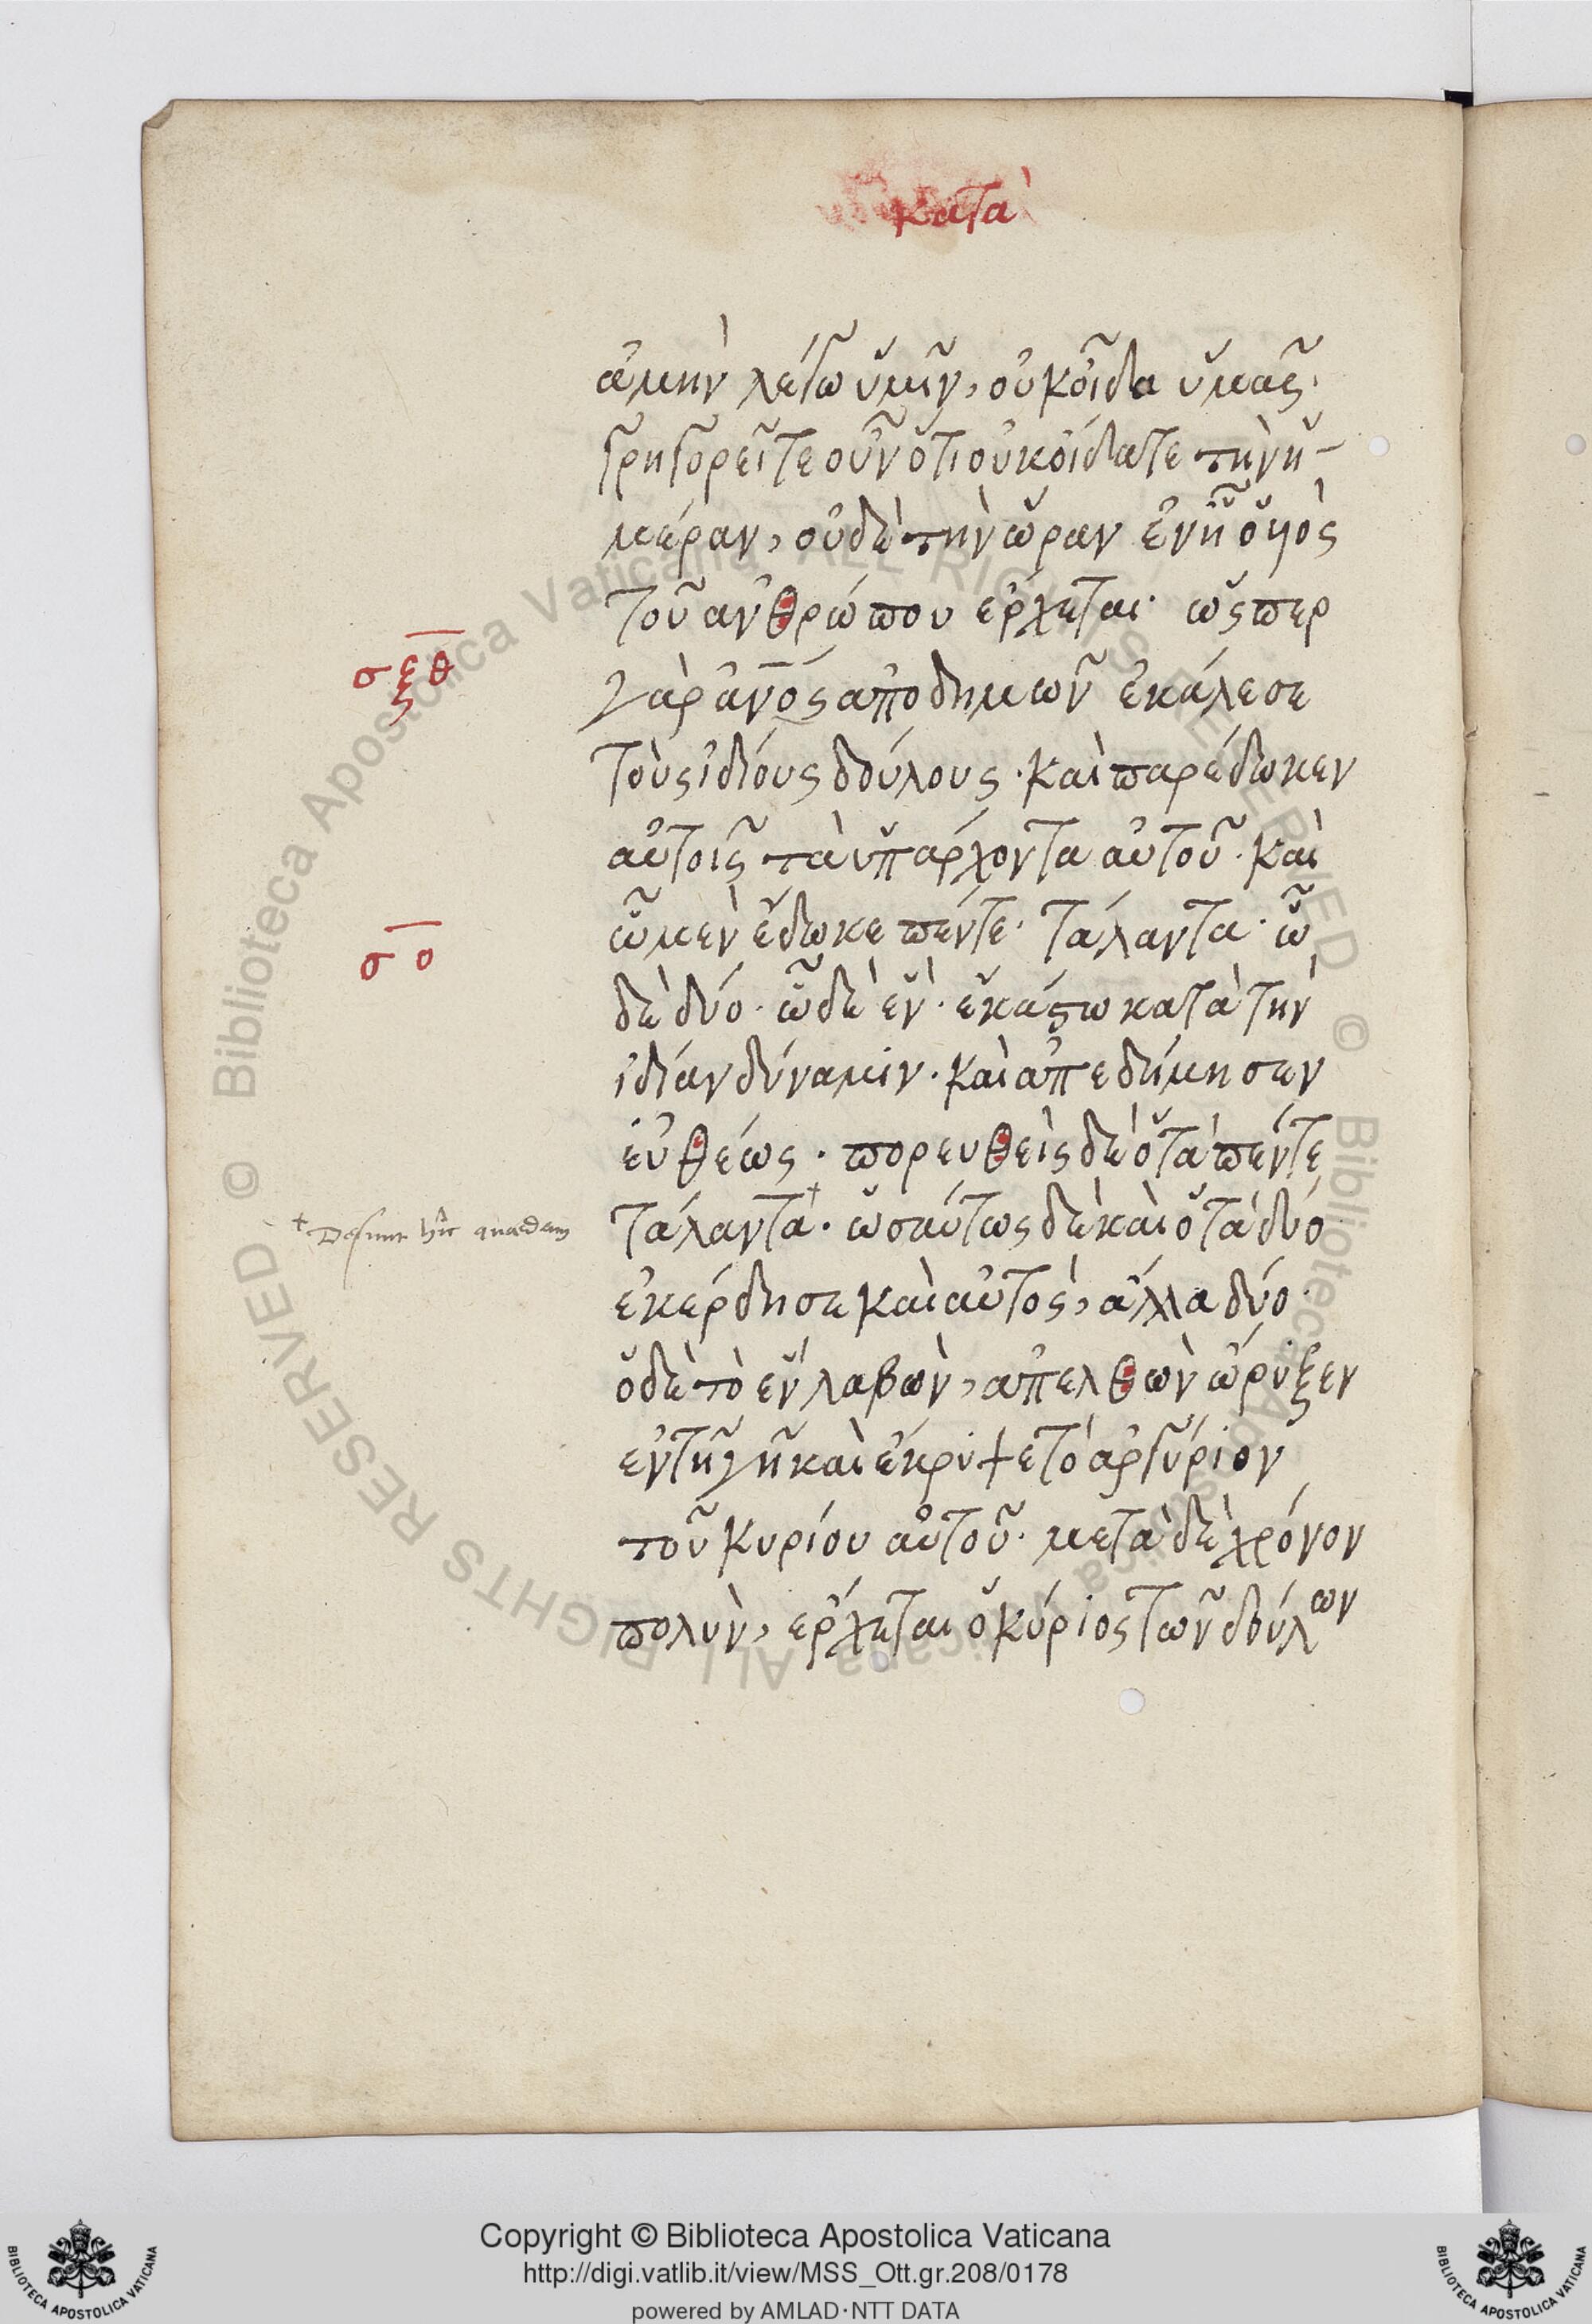 κατὰ
ἀμὴν λέγω ὑμῖν, οὐκ οἶδα ὑμᾶς.
γρηγορεῖτε οὖν ὅτι οὐκ οἴδατε τὴν ἡ-
μέραν, οὐδὲ τὴν ὥραν ἐν ᾗ ὁ υἱὸς
τοῦ ἀνθρώπου ἔρχεται· ὥςπερ
σξθ
γὰρ ἀνος ἀποδημῶν ἐκάλεσε
τοὺς ἰδίους δούλους· καὶ παρέδωκεν
αὐτοῖς τὰ ὑπάρχοντα αὐτοῦ· καὶ
σο
ᾧ μὲν ἔδωκε πέντε· τάλαντα· ᾧ
δὲ δύο· ᾧ δὲ ἕν· ἑκάστω κατὰ τὴν
ἰδίαν δύναμιν· καὶ ἀπεδήμησεν
εὐθέως· πορευθεὶς δὲ ὁ τὰ πέντε
+ Desunt hic quaedam
τάλαντα+· ὡσαύτως δὲ καὶ ὁ τὰ δύο
ἐκέρδησε καὶ αὐτὸς, ἄλλα δύο·
ὁ δὲ τὸ ἓν λαβὼν, ἀπελθὼν ὤρυξεν
ἐν τῆ γῆ καὶ ἔκρυψε τὸ ἀργύριον
τοῦ κυρίου αὐτοῦ· μετὰ δὲ χρόνον
πολὺν, ἔρχεται ὁ κύριος τῶν δούλων
Copyright © Biblioteca Apostolica Vaticana
http://digi.vatlib.it/view/MSS_Ott.gr.208/0178
powered by AMLAD·NTT DATA
BIBLIOTECA APOSTOLICA VATICANA
BIBLIOTECA APOSTOLICA VATICANA
© Biblioteca Apostolica Vaticana ALL RIGHTS RESERVED
© Biblioteca Apostolica Vaticana ALL RIGHTS RESERVED